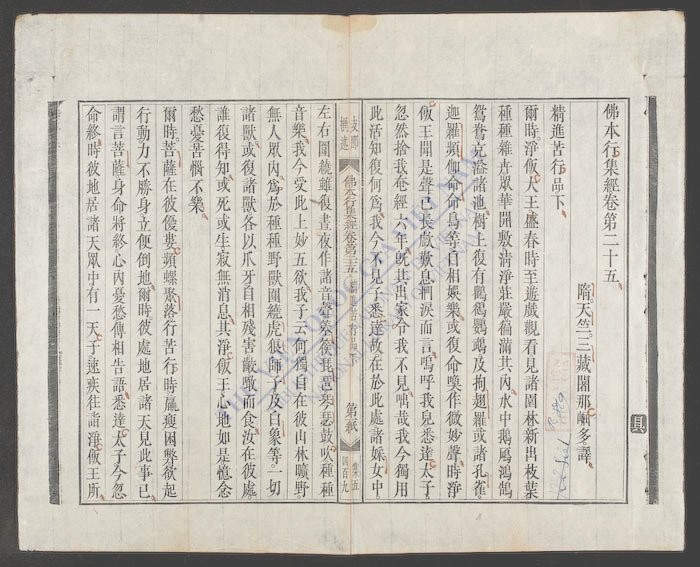 佛本行集經卷第二十五
隋天竺三藏闍那崛多譯
精進苦行品下
爾時淨飯大王盛春時至遊戲觀看見諸園林新出枝葉
種種雜卉眾華開敷清淨莊嚴徧滿其內水中鵝鴈鴻鵠
鴛鴦充溢諸池樹上復有鸜鵒鸚鵡及拘翅羅或諸孔雀
迦羅頻伽命命鳥等自相娛樂或復命喚作微妙聲時淨
飯王聞是聲已長歔歎息捫淚而言嗚呼我兒悉達太子
忽然捨我奄經六年旣其出家令我不見咄哉我今獨用
此活知復何為我今不見子悉達故在於此處諸婇女中
支那
撰述
佛本行集經卷第二十五
精進苦行品下
第 紙
四百九
左右圍繞雖復晝夜作諸音聲箜篌琵琶琴瑟鼓吹種種
音樂我今受此上妙五欲我子云何獨自在彼山林曠野
無人眾內為於種種野獸圍繞虎狼師子及白象等一切
諸獸或復諸獸各以爪牙自相殘害齩齧而食汝在彼處
誰復得知或死或生寂無消息其淨飯王心地如是憶念
愁憂苦惱不樂
爾時菩薩在彼優婁頻螺聚落行苦行時羸瘦困弊欲起
行動力不勝身立便倒地爾時彼處地居諸天見此事已
謂言菩薩身命將終心內憂愁傳相告語悉達太子今忽
命終時彼地居諸天眾中有一天子速疾往詣淨飯王所